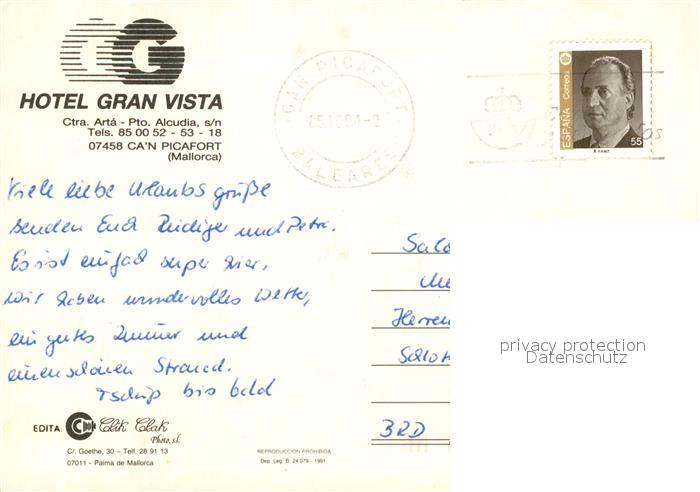 HOTEL GRAN VISTA
Ctra. Artá - Pto. Alcudia, s/n
Tels. 85 00 52 - 53 - 18
07458 CA'N PICAFORT
(Mallorca)
CAN PICAFORT
BALEARES
ESPAÑA Correos
55
Viele liebe Urlaubsgrüße
senden Euch Rüdiger und Petra.
Es ist einfach super hier,
wir haben wundervolles Wetter,
ein gutes Zimmer und
einen schönen Strand.
Tschüß bis bald
Herren
BRD
privacy protection
Datenschutz
EDITA:
Clik Clak
Photo, s.l.
C/. Goethe, 30 - Telf. 28 91 13
07011 - Palma de Mallorca
REPRODUCCION PROHIBIDA
Dep. Leg. B. 24.079 - 1991